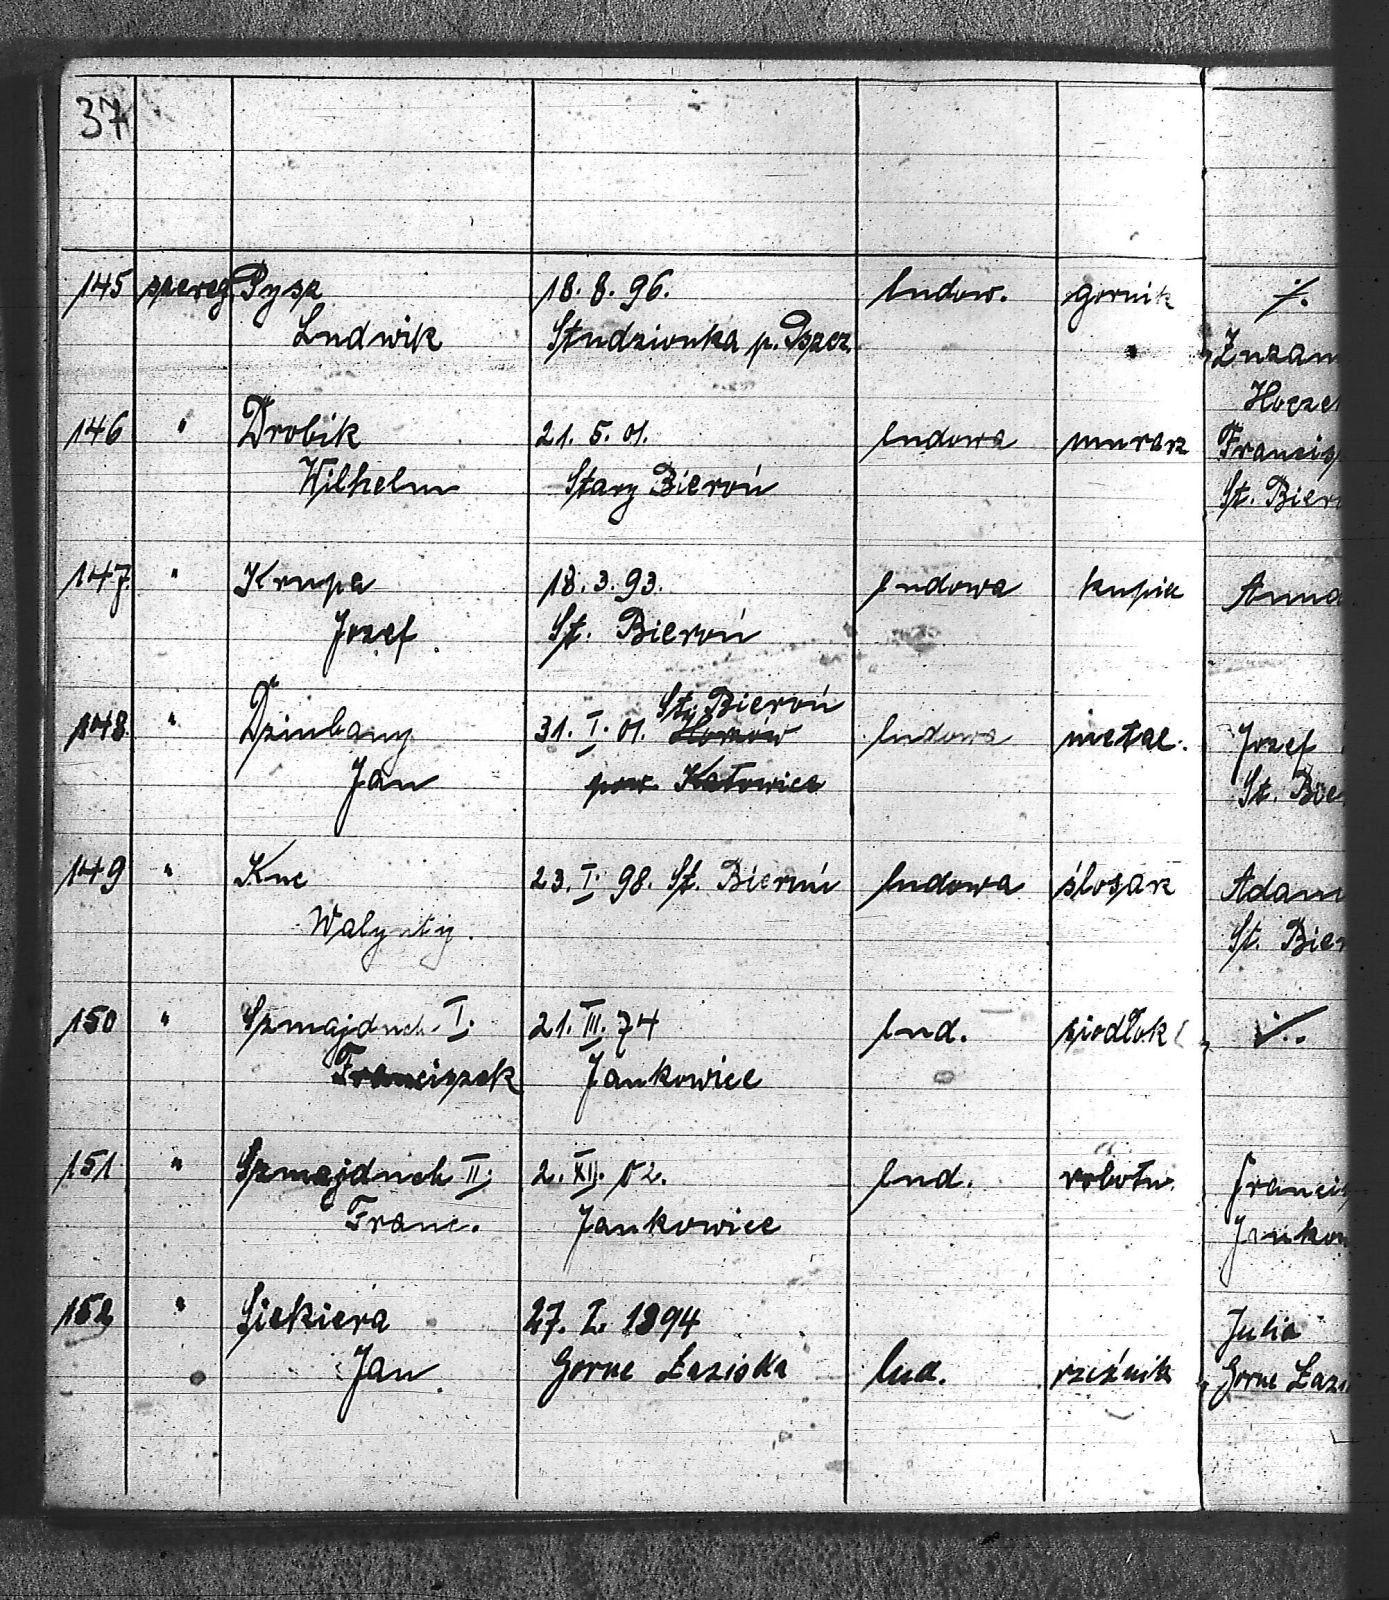 37
145 szereg. Pysz 18. 8. 96. ludow. gornik %
Ludwik Studzionka p. Pszcz. Zuzan
Hocze
146 " Drobik 21. 5. 01. ludowa murarz Francis
Wilhelm Stary Bieruń St. Bier
147. " Krupa 18. 3. 93. ludowa kupiec Anna
Jozef St. Bieruń
St. Bieruń
148. " Dziubany 31. I. 01. ludowa metal. Jozef
Jan pow. Katowice St. Bie
149 " Kuc 23. I. 98. St. Bieruń ludowa ślosarz Adam
Walynty. St. Bier
150 " Szmajduch I. 21. III. 74 lud. siodłok
Franciszek Jankowice
151 " Szmajduch II. 2. XII. 02. lud. robotn. Franci
Franc. Jankowice Jankow
152 " Siekiera 27. I. 1894 Julia
Jan Gorne Łaziska lud. rzeźnik Gorne Łazi